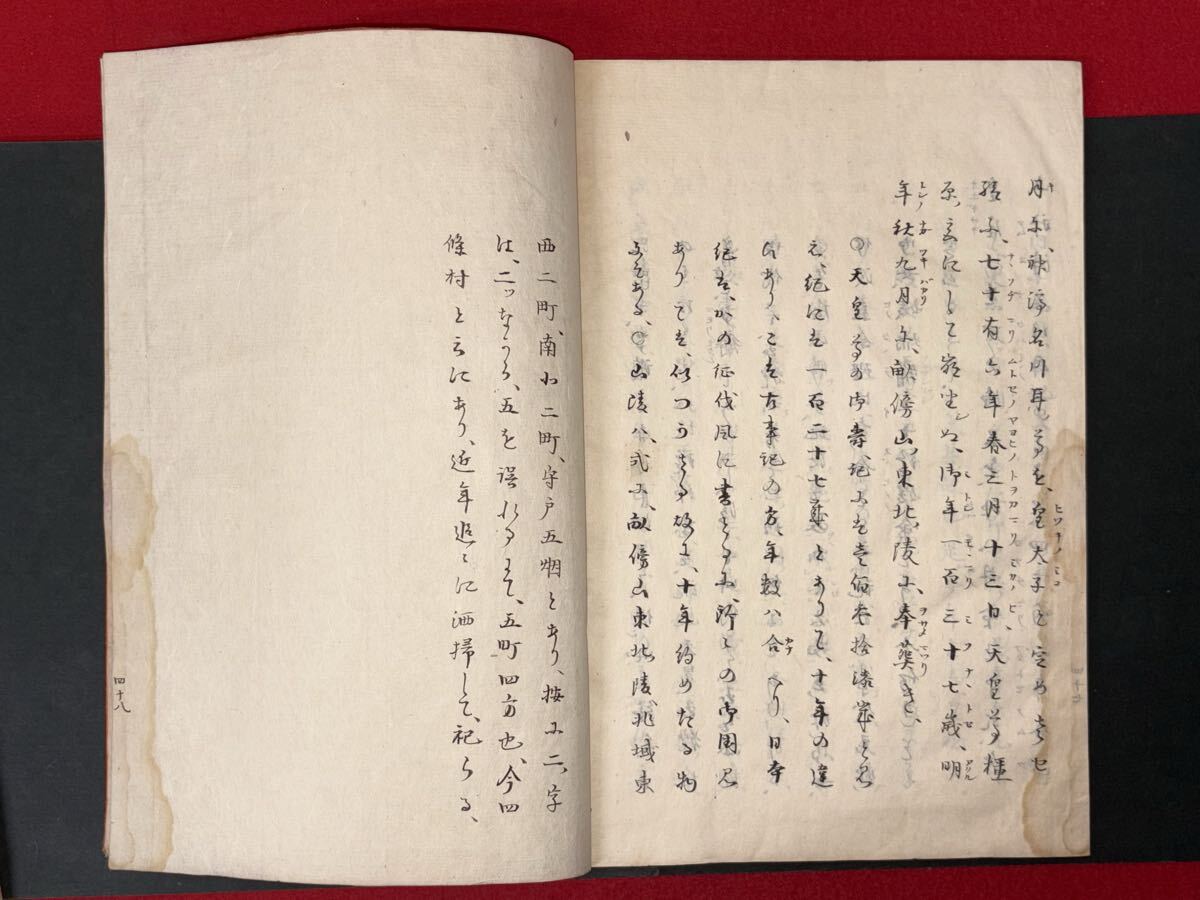 月に、神渟名川耳尊を、皇太子と定め
給ふ、七十有六年春三月十三日、天皇尊橿
原、宮にして崩坐ぬ、御年一百三十七歳、明
年秋九月に、畝傍山、東北、陵に奉葬き、
○天皇尊の御寿、記には壱佰参拾漆歳と見
え、紀には一百二十七歳とありて、十年の違
ひあり、こは古事記の方、年数ハ合へり、日本
紀は、かの征伐
ありては、故に、十年約めたる物
○山陵ハ、式に、畝傍山東北陵、兆域東
西二町、南北二町、守戸五烟とあり、按に二、字
は、二ツながら、五を誤れるにて、五町四方也、今四
條村と云にあり、近年追々に洒掃して、祀らる、
四十八